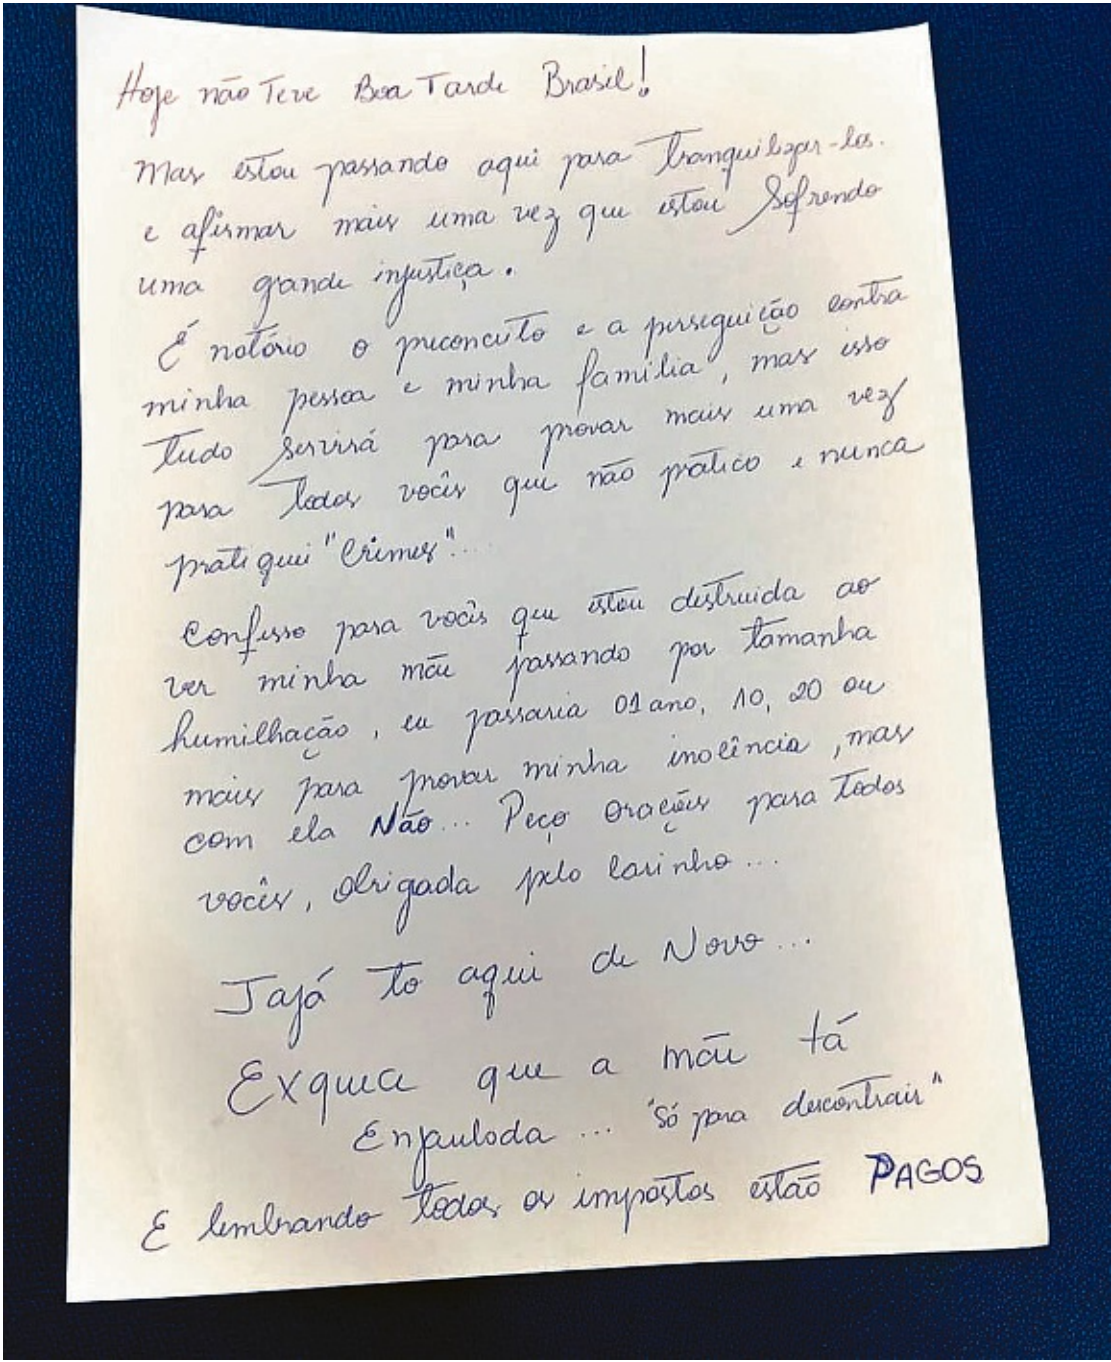 Hoje não Teve Boa Tarde Brasil!
Mas estou passando aqui para Tranquilizar-los.
e afirmar mais uma vez que estou Sofrendo
uma grande injustiça.
É notório o preconceito e a perseguição contra
minha pessoa e minha família, mas isso
Tudo Servirá para provar mais uma vez
para Todos vocês que não pratico e nunca
pratiquei "Crimes"...
Confesso para vocês que estou destruida ao
ver minha mãe passando por tamanha
humilhação, eu passaria 01 ano, 10, 20 ou
mais para provar minha inocência, mas
com ela Não... Peço Orações para Todos
vocês, Obrigada pelo Carinho...
Jajá to aqui de Novo...
Exquece que a mãe tá
Enjaulada... "Só para descontrair"
E lembrando Todos os impostos estão PAGOS